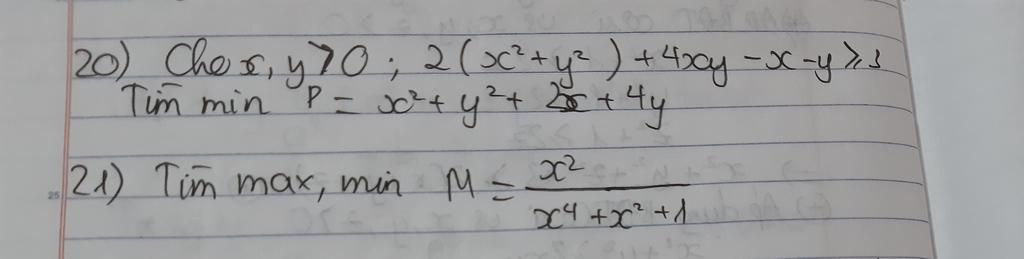 20) Cho x, y > 0 ; 2(x² + y²) + 4xy - x - y ≥ 1
Tìm min P = x² + y² + 2x + 4y
21) Tìm max, min M = x² / x⁴ + x² + 1
25